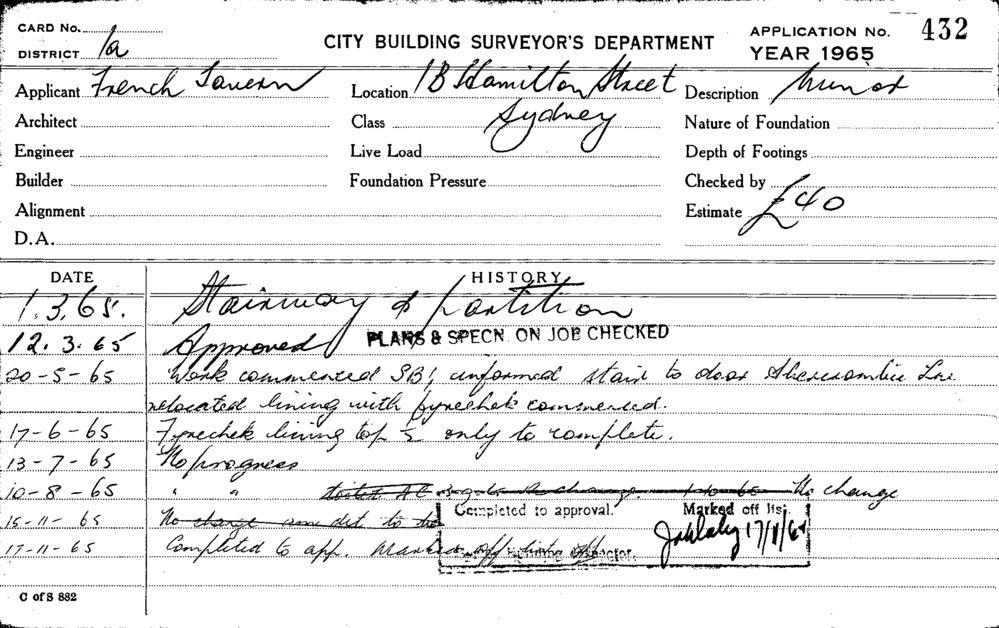 CARD No.
DISTRICT 1a
CITY BUILDING SURVEYOR'S DEPARTMENT
APPLICATION No. 432
YEAR 1965
Applicant French Tavern
Location 18 Hamilton Street
Sydney
Description Minor
Architect
Class
Nature of Foundation
Engineer
Live Load
Depth of Footings
Builder
Foundation Pressure
Checked by
Alignment
Estimate £40
D.A.
DATE HISTORY
1.3.65. Stairway & partition
12.3.65 Approved PLANS & SPECN. ON JOB CHECKED
20-5-65 Work commenced informed stair to door Abercrombie Lne
relocated lining with fyrechek commenced.
17-6-65 Fyrechek lining top ½ only to complete.
13-7-65 No progress
10-8-65 " " No change
15-11-65 No change
17-11-65 Completed to app. Marked off list
Completed to approval.
Marked off list.
17/11/65
C of S 882